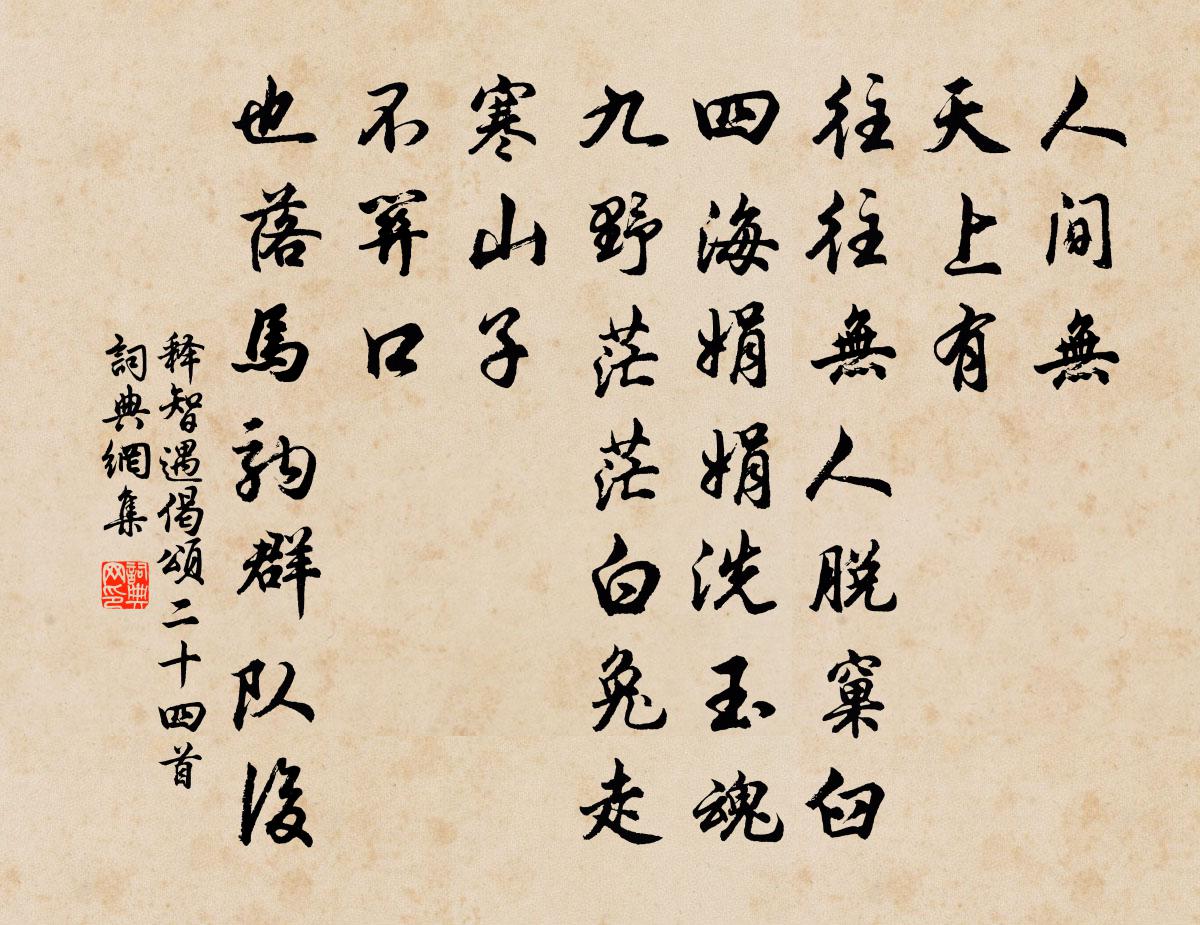 人間無
天上有
往往無人脫窠臼
四海娟娟洗玉魂
九野茫茫白兔走
寒山子
不開口
也落馬駒群队後
释智遇偈頌二十四首
詞典網集
詞典网印